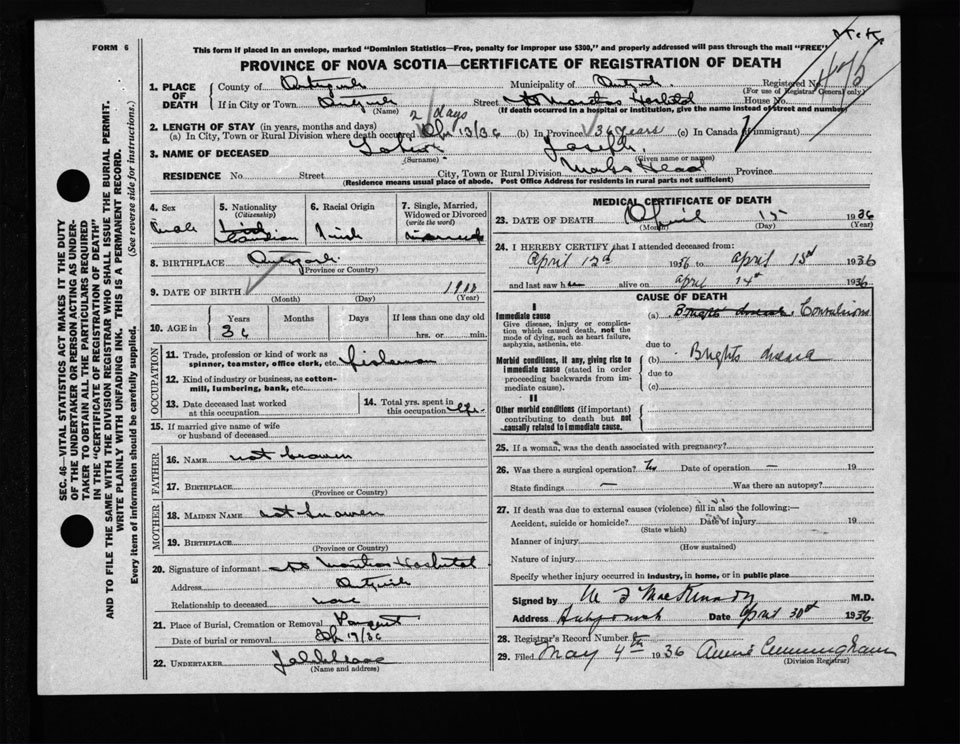 FORM 6
This form if placed in an envelope, marked "Dominion Statistics—Free, penalty for improper use $300," and properly addressed will pass through the mail "FREE"
PROVINCE OF NOVA SCOTIA—CERTIFICATE OF REGISTRATION OF DEATH
1. PLACE OF DEATH
County of
Municipality of
Registered No.
(For use of Registrar General only)
If in City or Town
(Name)
Street
House No.
(If death occurred in a hospital or institution, give the name instead of street and number)
2. LENGTH OF STAY (in years, months and days)
2 days
(a) In City, Town or Rural Division where death occurred 13/36 (b) In Province 36 years (c) In Canada (if immigrant)
3. NAME OF DECEASED Joseph
(Surname) (Given name or names)
RESIDENCE No. Street City, Town or Rural Division Province
(Residence means usual place of abode. Post Office Address for residents in rural parts not sufficient)
4. Sex
male
5. Nationality
(Citizenship)
Canadian
6. Racial Origin
Irish
7. Single, Married, Widowed or Divorced
(write the word)
married
8. BIRTHPLACE
(Province or Country)
9. DATE OF BIRTH 1900
(Month) (Day) (Year)
10. AGE in
Years Months Days If less than one day old
36 hrs. or min.
OCCUPATION
11. Trade, profession or kind of work as spinner, teamster, office clerk, etc. fisherman
12. Kind of industry or business, as cotton-mill, lumbering, bank, etc.
13. Date deceased last worked at this occupation
14. Total yrs. spent in this occupation life
15. If married give name of wife or husband of deceased
FATHER
16. NAME not known
17. BIRTHPLACE
(Province or Country)
MOTHER
18. MAIDEN NAME not known
19. BIRTHPLACE
(Province or Country)
20. Signature of informant St Marthas Hospital
Address
Relationship to deceased none
21. Place of Burial, Cremation or Removal
Date of burial or removal 17/36
22. UNDERTAKER
(Name and address)
MEDICAL CERTIFICATE OF DEATH
23. DATE OF DEATH April 15 1936
(Month) (Day) (Year)
24. I HEREBY CERTIFY that I attended deceased from
April 13th 1936 to April 15th 1936
and last saw h alive on April 14th 1936
CAUSE OF DEATH
I
Immediate cause
Give disease, injury or complication which caused death, not the mode of dying, such as heart failure, asphyxia, asthenia, etc.
(a) Brights disease. Convulsions
due to
Morbid conditions, if any, giving rise to immediate cause (stated in order proceeding backwards from immediate cause).
(b) Brights disease
due to
(c)
II
Other morbid conditions (if important) contributing to death but not causally related to immediate cause.
25. If a woman, was the death associated with pregnancy?
26. Was there a surgical operation? No Date of operation — 19
State findings — Was there an autopsy?
27. If death was due to external causes (violence) fill in also the following:—
Accident, suicide or homicide? Date of injury 19
(State which)
Manner of injury
(How sustained)
Nature of injury
Specify whether injury occurred in industry, in home, or in public place
Signed by MacKinnon M.D.
Address Antigonish Date April 30th 1936
28. Registrar's Record Number
29. Filed May 4th 1936 Annie Cunningham
(Division Registrar)
SEC. 46—VITAL STATISTICS ACT MAKES IT THE DUTY
OF THE UNDERTAKER OR PERSON ACTING AS UNDER-
TAKER TO OBTAIN ALL THE PARTICULARS REQUIRED
IN THE "CERTIFICATE OF REGISTRATION OF DEATH"
AND TO FILE THE SAME WITH THE DIVISION REGISTRAR WHO SHALL ISSUE THE BURIAL PERMIT.
WRITE PLAINLY WITH UNFADING INK. THIS IS A PERMANENT RECORD.
Every item of information should be carefully supplied. (See reverse side for instructions.)